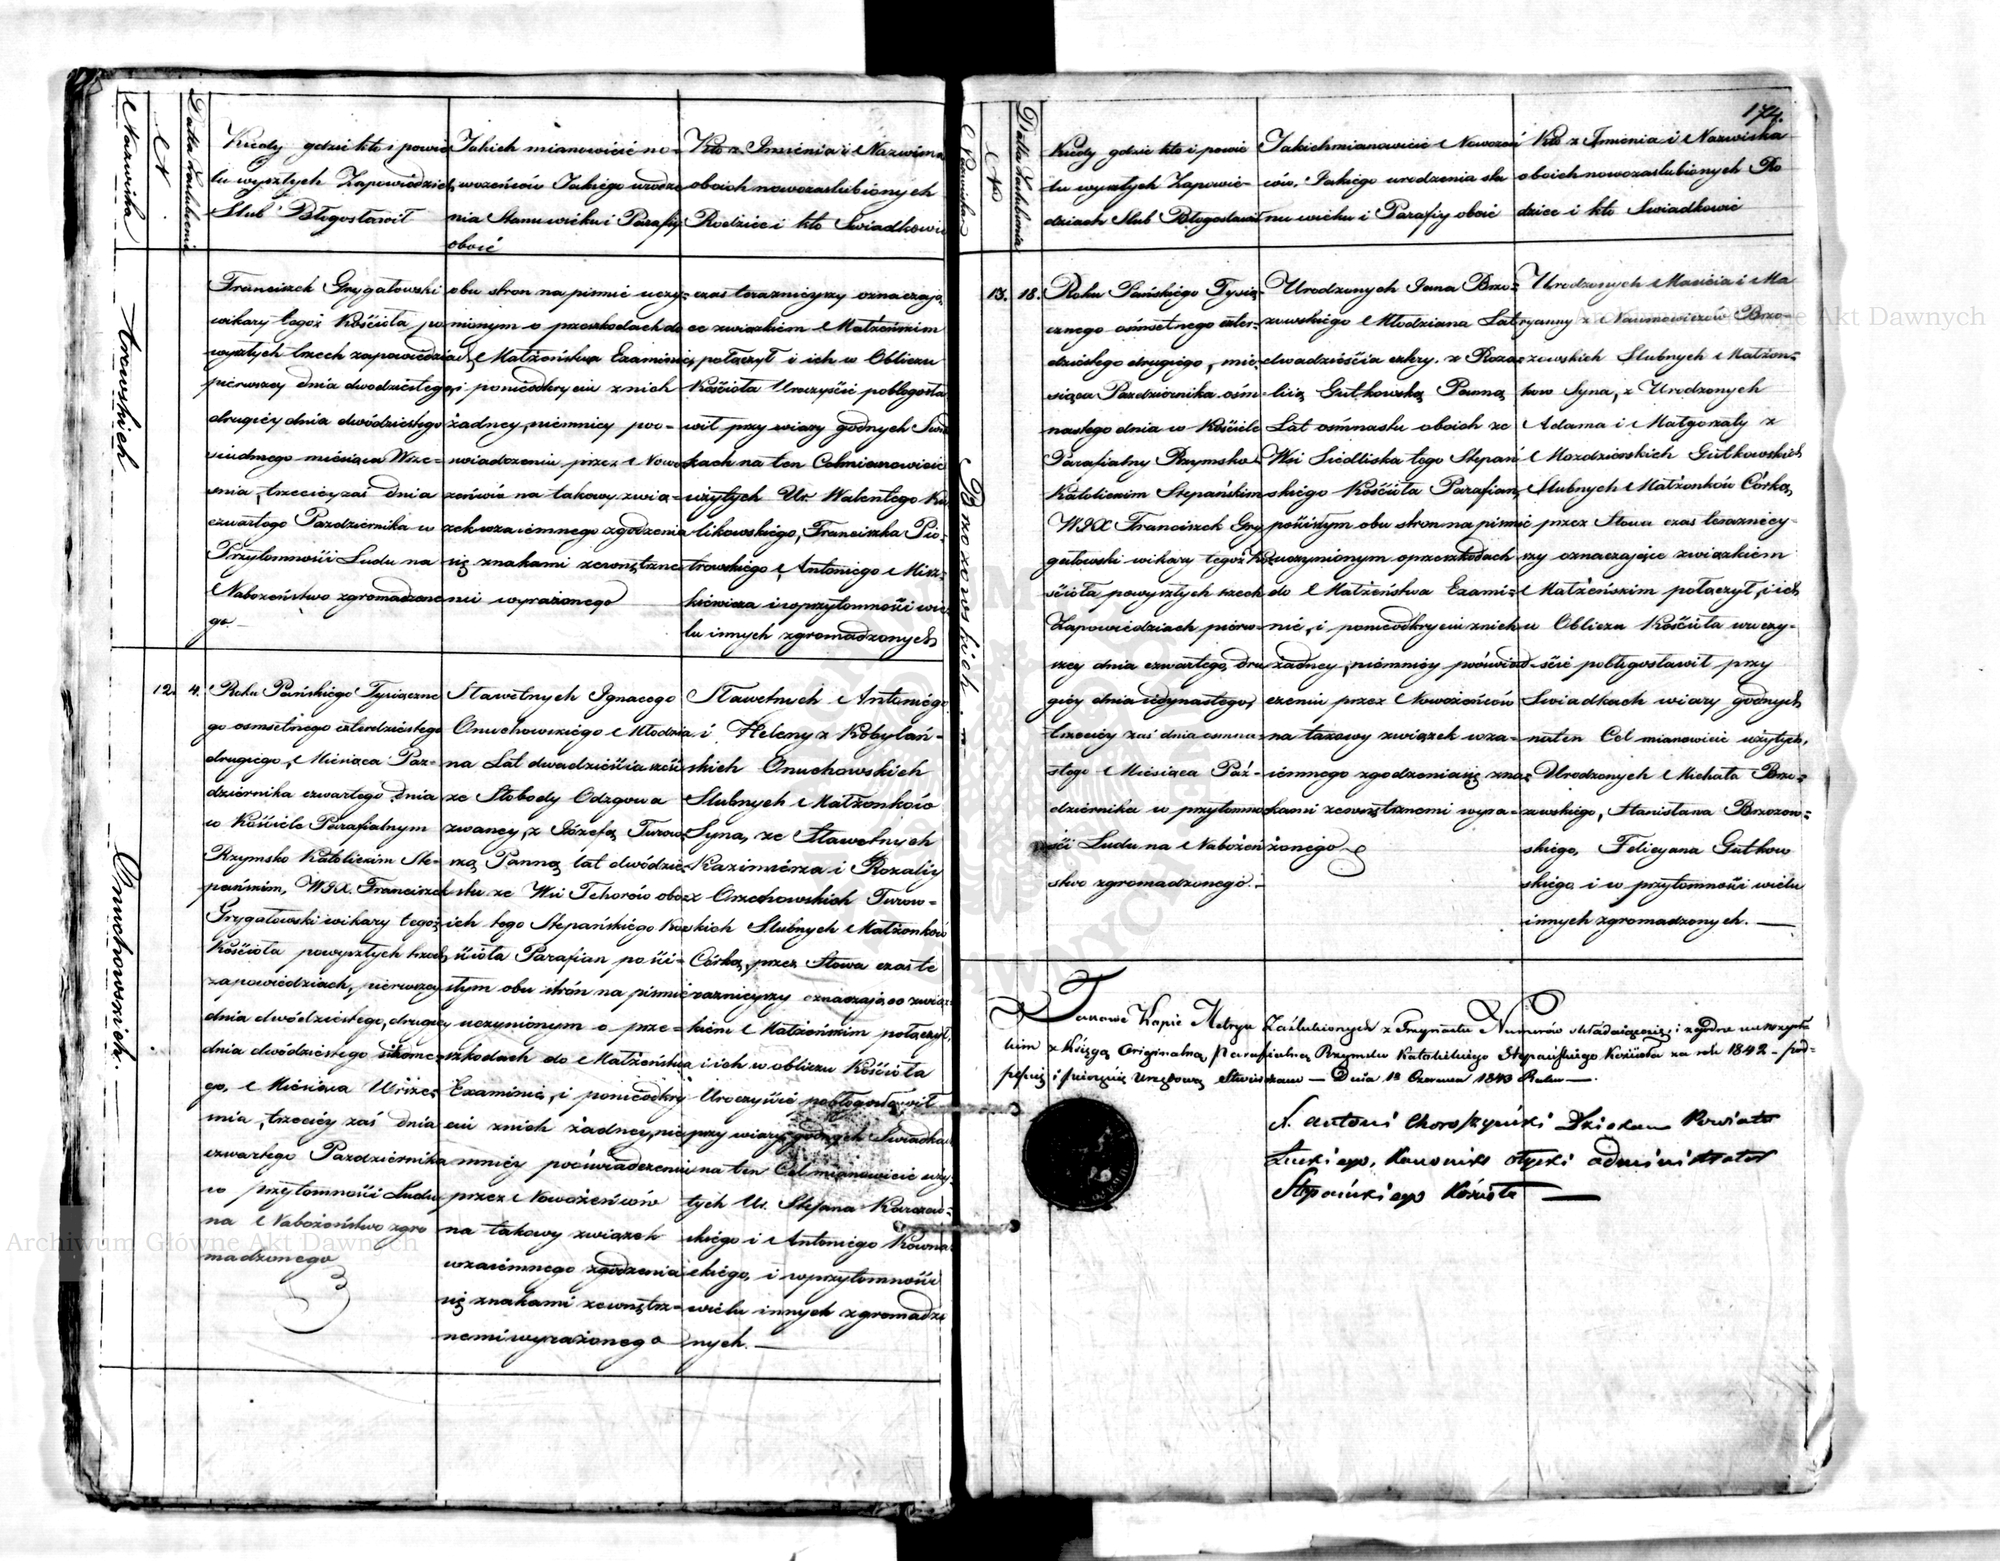 Nazwiska
N
Datta Zaslubienia
Kiedy gdzie kto i powie
lu wyszłych Zapowiedziach
Slub Błogosławił
Jakich mianowicie no-
wożeńców Jakiego urodze
nia Stanu wieku i Parafiy
oboie
Kto z Imienia i Nazwiska
oboich nowozaslubionych
Rodzice i kto Swiadkowie
Franciszek Grygałowski
wikary tegóż Kościoła po
wyszłych trzech zapowiedziach
pierwszey dnia dwodziestego
drugiey dnia dwódziestego
siudmego miesiąca Wrze-
snia, trzeciey zaś dnia
czwartego Pazdziernika w
Przytomności Ludu na
Nabożeństwo zgromadzone
go
obu stron na pismie uczy-
nionym o przeszkodach do
Małżeństwa Examinie,
i ponieodkryciu z nich
żadney, niemniey po-
swiadczeniu przez Nowo
żeńców na takowy zwią-
zek wzaiemnego zgodzenia
się znakami zewnętrzne
mi wyrażonego
czas teraznieyszy oznaczają
ce związkiem Małżeńskim
połączył i ich w Obliczu
Kościoła Uroczyście pobłogosła
wił przy wiary godnych Swia
kach na ten Cel mianowicie
użytych Ur. Walentego Ku
likowskiego, Franciszka Pio-
trowskiego, Antoniego Misz-
kiewicza i w przytomności wie
lu innych zgromadzonych
12. 4.
Onuchowskich.
Roku Pańskiego Tysiączne
go osmsetnego czterdziestego
drugiego, Miesiąca Paz-
dziernika czwartego dnia
w Kościele Parafialnym
Rzymsko Katolickim Ste-
pańskim, WJX. Franciszek
Grygałowski wikary tegóż
Kościoła powyszłych trzech
zapowiedziach, pierwszey
dnia dwódziestego, drugiey
dnia dwódziestego siódme-
go, Miesiąca Wrzes-
nia, trzeciey zaś dnia
czwartego Pazdziernika
w przytomności Ludu
na Nabożeństwo zgro
madzonego
Sławetnych Ignacego
Onuchowskiego Młodzia
na Lat dwadzieścia sześć
ze Słobody Odzgowa
zwaney, z Józefą Turow-
ską Panną lat dwódzie-
stu ze Wsi Tchorów obo-
ich tego Stepańskiego Ko-
ścioła Parafian po ści-
słym obu strón na pismie
uczynionym o prze-
szkodach do Małżeństwa
Examinie, i ponieodkry
ciu znich żadney, nie
mniey poświadczeniu
przez Nowożeńców
na takowy związek
wzaiemnego zgodzenia
się znakami zewnętrz-
nemi wyrażonego
Sławetnych Antoniego
i Heleny z Kobylań-
skich Onuchowskich
Slubnych Małżonków
Syna, ze Sławetnych
Kazimierza i Rozalii
z Orzechowskich Turow-
skich Slubnych Małżonków
Córką, przez Słowa czas te
raznieyszy oznaczające zwią-
zkiem Małżeńskim połączył,
i ich w obliczu Kościoła
Uroczyście pobłogosławił
przy wiary godnych Swiadka
na ten Cel mianowicie uży
tych Ur. Stefana Karczew-
skiego i Antoniego Kowna-
ckiego, i wprzytomności
wielu innych zgromadzo
nych.
174.
Nazwiska
N
Datta Zaslubienia
Kiedy gdzie kto i powie
lu wyszłych Zapowie-
dziach Slub Błogosławił
Jakich mianowicie Nowożeń
ców. Jakiego urodzenia sta
nu wieku i Parafiy oboie
Kto z Imienia i Nazwiska
oboich nowozaslubionych Ro
dzice i kto Swiadkowie
13. 18.
Brzozowskich
Roku Pańskiego Tysią-
cznego ośmsetnego czter-
dziestego drugiego, mie-
siąca Pazdziernika osm-
nastego dnia w Kościele
Parafialny Rzymsko-
Katolickim Stepańskim
WJX Franciszek Gry
gałowski wikary tegóż Ko-
ścioła powyszłych trzech
Zapowiedziach pierw-
szey dnia czwartego, dru
giey dnia iedynastego,
trzeciey zaś dnia osmna-
stego Miesiąca Paź-
dziernika w przytomno
ści Ludu na Nabożeń
stwo zgromadzonego.
Urodzonych Jana Brzo-
zowskiego Młodziana Lat
dwadzieścia cztery, z Roza-
lią Gutkowską Panną
Lat ośmnastu oboich ze
Wsi Siedliska tego Stepań
skiego Kościoła Parafian,
pościsłym obu stron na pismie
uczynionym oprzeszkodach
do Małżeństwa Exami-
nie, i ponieodkryciu znich
żadney, niemniey poświad-
czeniu przez Nowożeńców
na takowy związek wza-
iemnego zgodzenia się zna-
kami zewnętrznemi wyra-
żonego
Urodzonych Macieia i Ma
ryanny z Naumowiczów Brzo-
zowskich Slubnych Małżon-
ków Syna, z Urodzonych
Adama i Małgorzaty z
Mozdzierskich Gutkowskich
Slubnych Małżonków Córką,
przez Słowa czas teraźniey-
szy oznaczające związkiem
Małżeńskim połączył, i ich
w Obliczu Kościoła uroczy-
ście pobłogosławił przy
Swiadkach wiary godnych
naten Cel mianowicie użytych,
Urodzonych Michała Brzo-
zowskiego, Stanisława Brzozow-
skiego, Felicyana Gutkow
skiego i w przytomności wielu
innych zgromadzonych.
Takowe Kopie Metryk Zaślubionych z Trzynastu Numerów składaiące się i zgodne uwszyst
kim z Księgą Originalną Parafialną Rzymsko Katolickiego Stepańskiego Kościoła za rok 1842 - pod-
pisuię i pieczęcią urzędową stwierdzam — Dnia 18 Czerwca 1843 Roku —.
X. Antoni Choroszyński Dziekan Powiatu
Łuckiego, Kanonik Ołycki administrator
Stepańskiego Kościoła
Archiwum Główne Akt Dawnych
Archiwum Główne Akt Dawnych